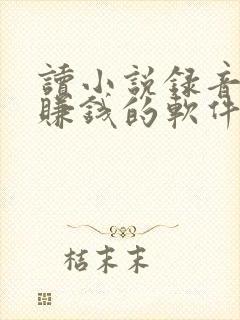 讀小説録音
賺錢的軟件
桔末末